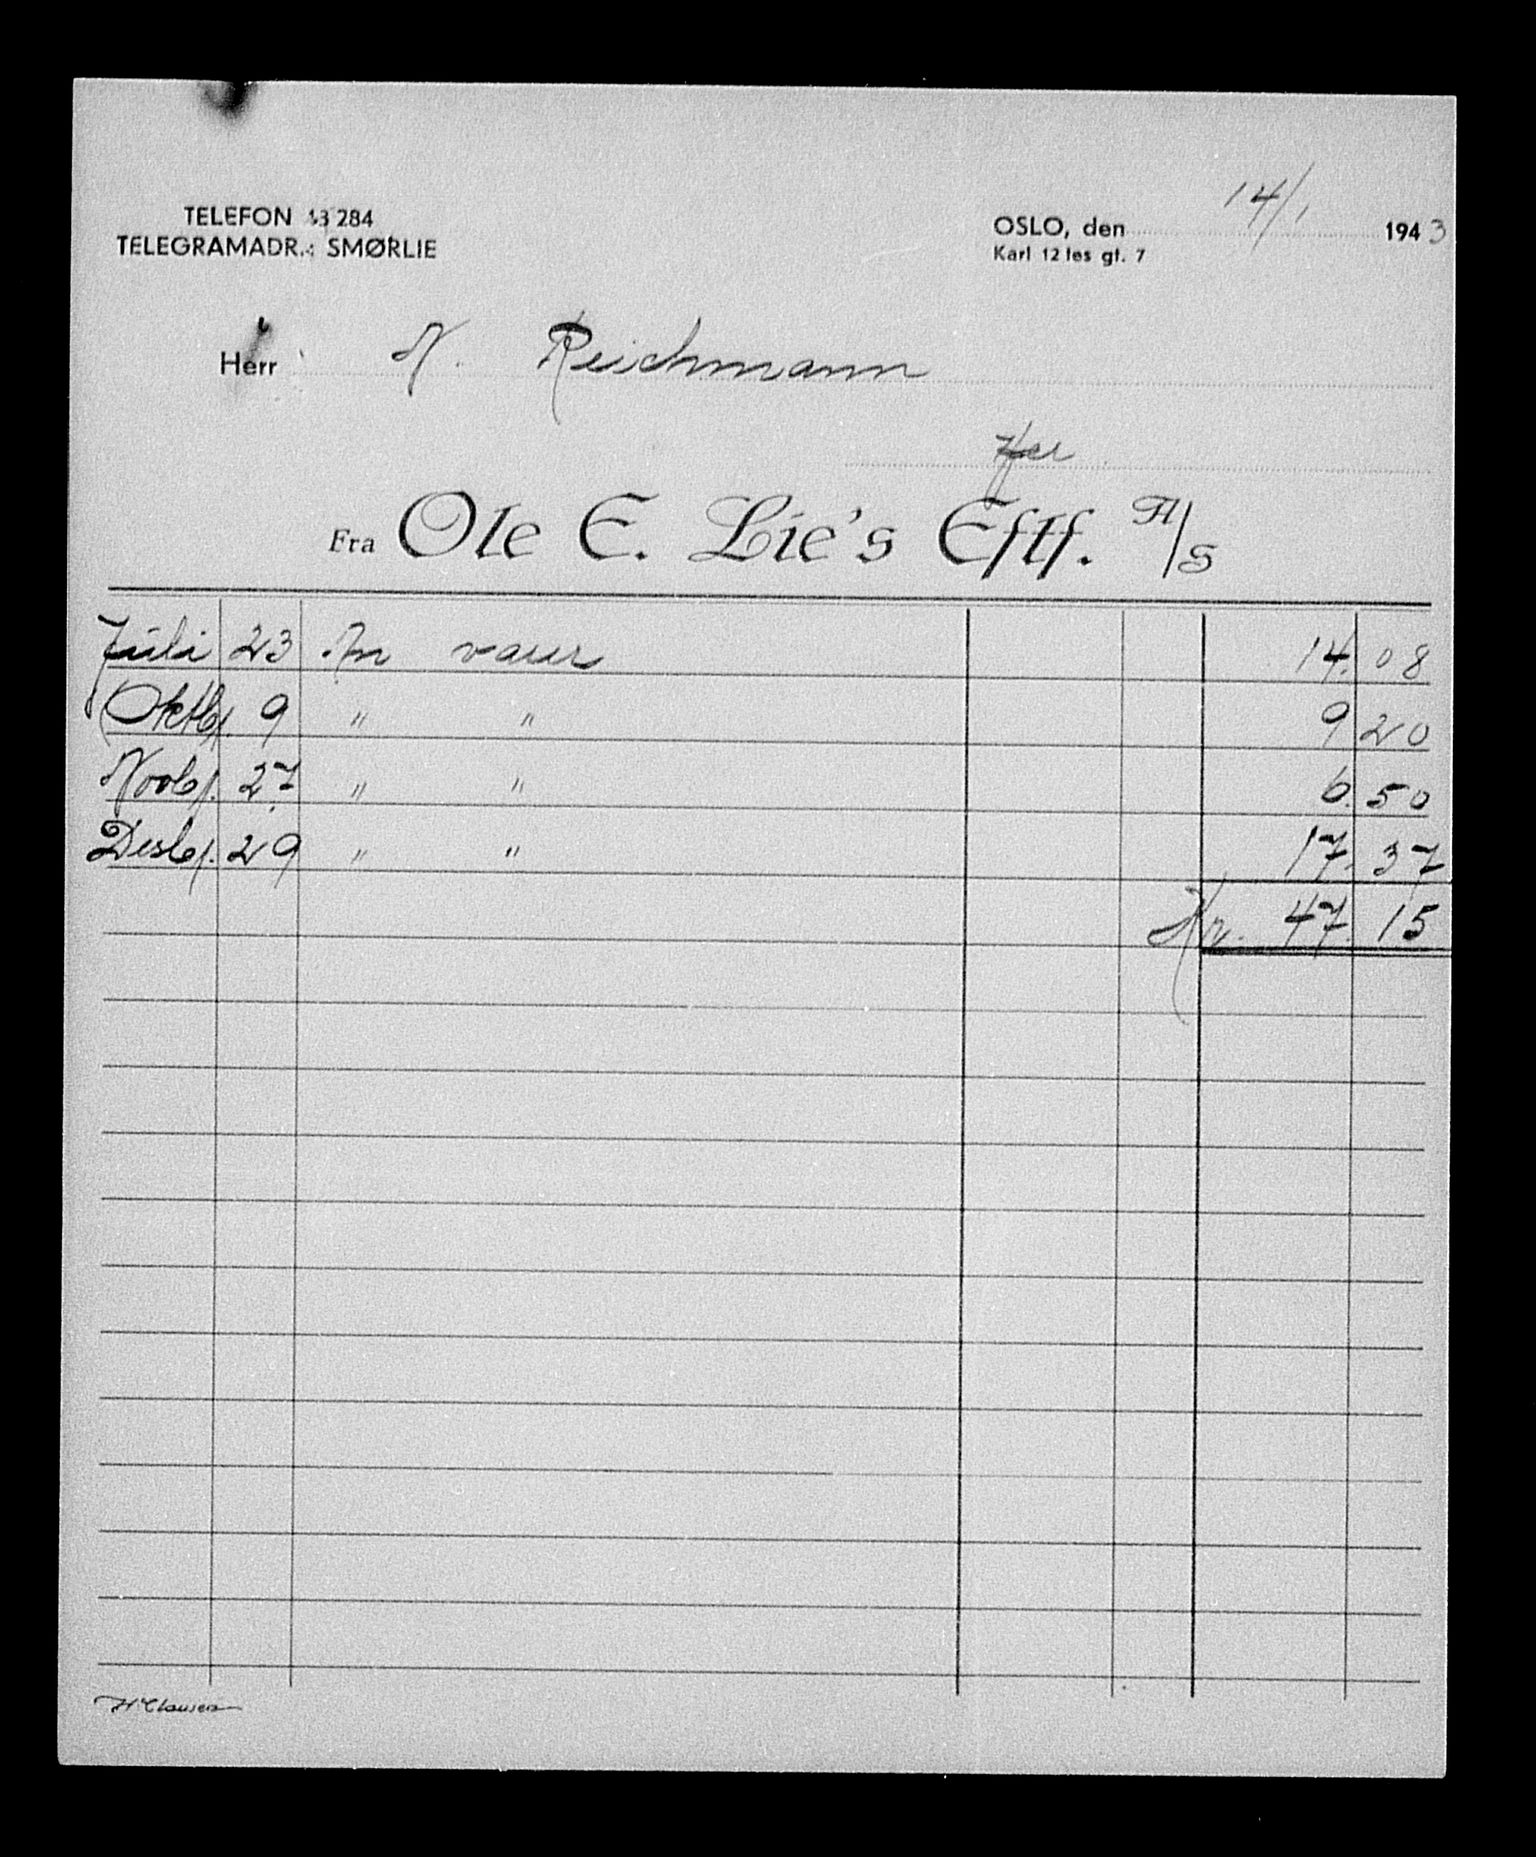 TELEFON 43284
TELEGRAMADR.: SMØRLIE
OSLO, den 14/1 1943
Karl 12tes gt. 7
Herr N. Reichmann
Her
Fra Ole E. Lie's Eftf. A/S
Juli 23 An varer 14.08
Oktbr. 9 " " 9 20
Novbr. 27 " " 6.50
Desbr. 29 " " 17.37
Kr. 47.15
H Clausen